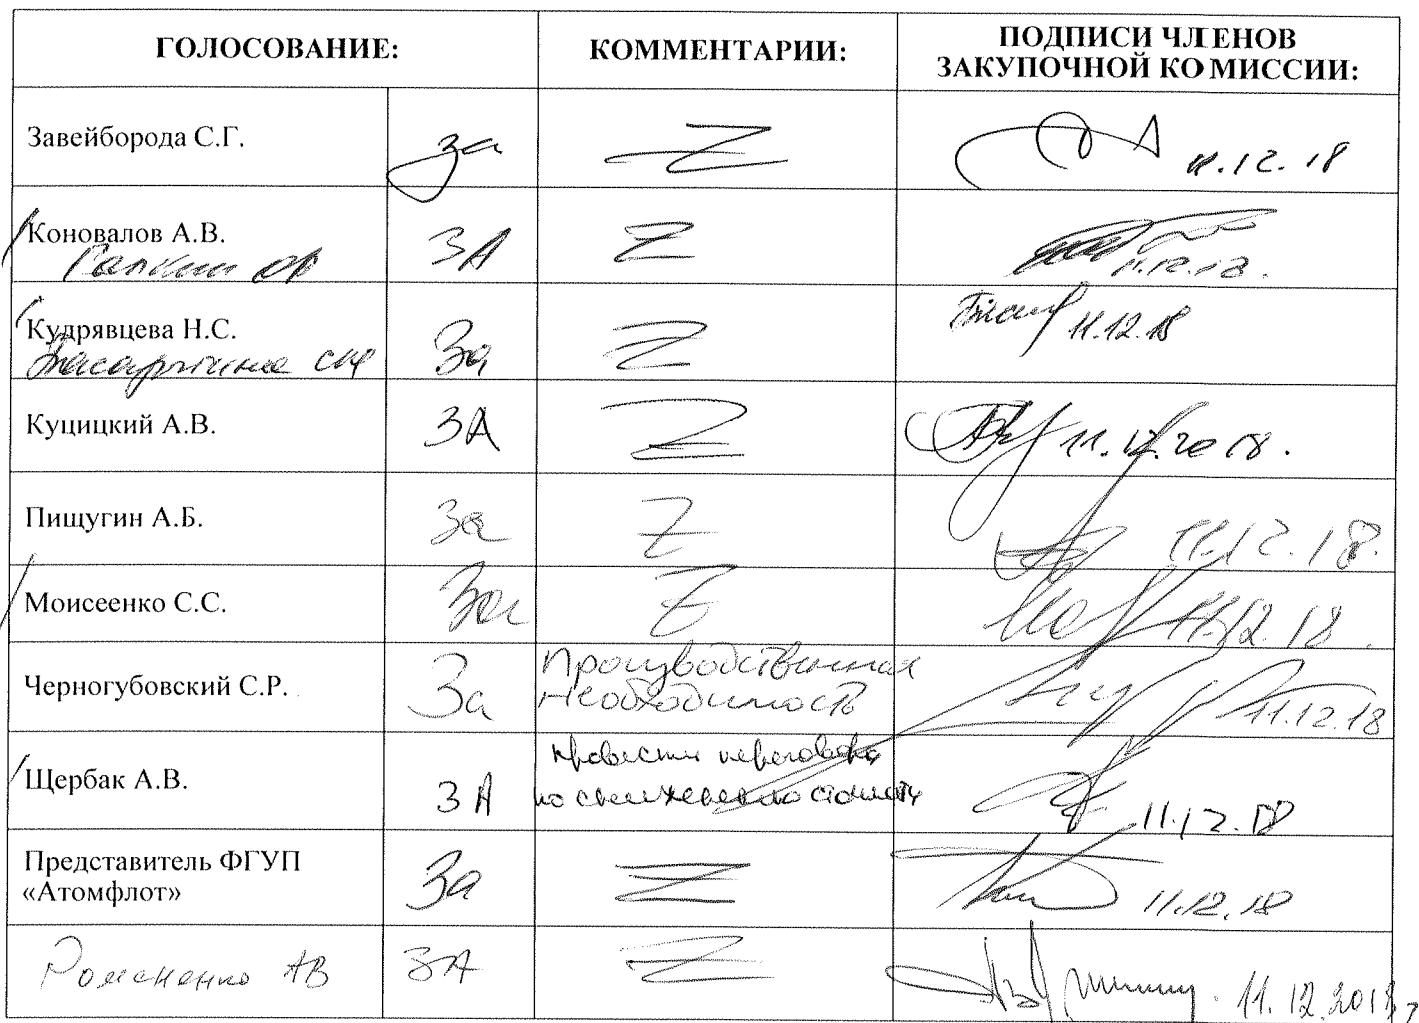 ГОЛОСОВАНИЕ: КОММЕНТАРИИ: ПОДПИСИ ЧЛЕНОВ
ЗАКУПОЧНОЙ КОМИССИИ:
Завейборода С.Г. за Z 11.12.18
Коновалов А.В. ЗА Z 11.12.18.
Кудрявцева Н.С. За Z 11.12.18
Куцицкий А.В. ЗА Z 11.12.2018.
Пищугин А.Б. За Z 11.12.18.
Моисеенко С.С. За Z 11.12.18.
Черногубовский С.Р. За Производственная
необходимость 11.12.18
Щербак А.В. ЗА провести переговоры
по снижению стоимости 11.12.18
Представитель ФГУП
«Атомфлот» За Z 11.12.18
Романенко АВ ЗА Z 11.12.2018г